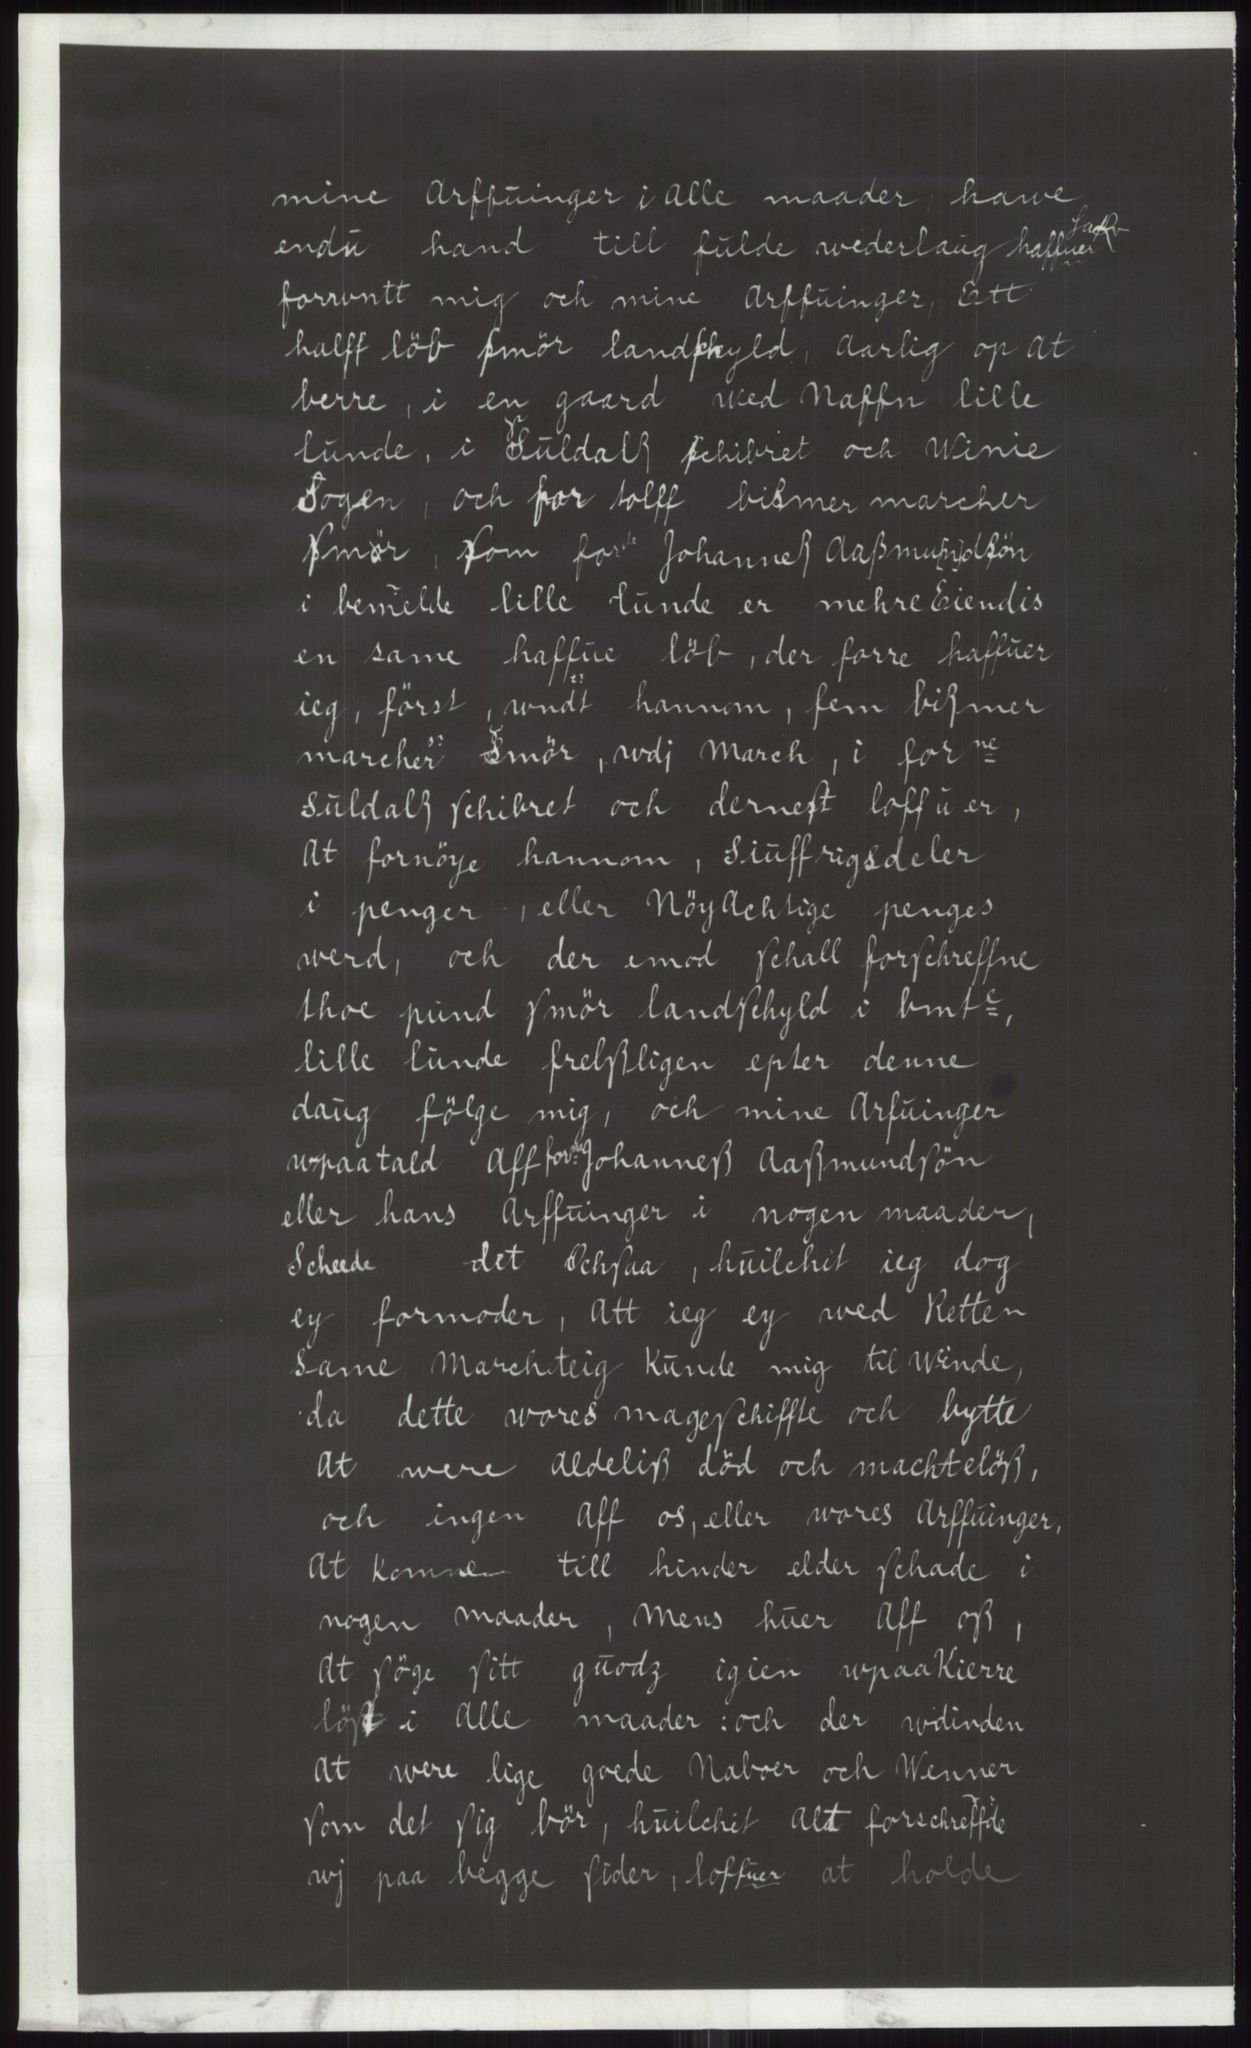 mine Arffuinger i Alle maader, hawe
endu hand till fulde wederlaug haffuer
forruntt mig och mine Arffuinger, Ett
halff löb smör landschyld, Aarlig op At
berre, i en gaard wed Naffn lille
lunde, i Suldalß schibret och Winie
Sogen, och for tolff bismer marcher
smör, som forde Johanneß Aaßmundsön
i bemelde lille lunde er mehre Eiendis
en same haffue löb, der forre haffuer
ieg, först, wndt hannom, fem bißmer
marcher Smör, wdj March, i forne
Suldalß schibret och dernest loffuer,
At fornöye hannom, Siuff rigsdeler
i penger, eller Nöyachtige penges
werd, och der emod schall forschreffne
thoe pund smör landschyld i bmte,
lille lunde frelßligen epter denne
daug fölge mig, och mine Arfuinger
wpaatald Aff forne Johanneß Aaßmundsön
eller hans Arffuinger i nogen maader,
Scheede det Schsaa, huilchit ieg dog
ey formoder, Att ieg ey wed Retten
Same Marchteig Kunde mig til winde,
da dette wores mageschiffte och bytte
At were Aldeliß död och machtelöß,
och ingen Aff os, eller wores Arffuinger,
At komme till hinder elder schade i
nogen maader, Mens huer Aff oß,
At söge sitt guodz igien wpaaKierre
löst i Alle maader: och der wdinden
At were lige goede Naboer och Wenner
som det sig bör, huilchit Alt forschreffde
wj paa begge sider, loffuer at holde